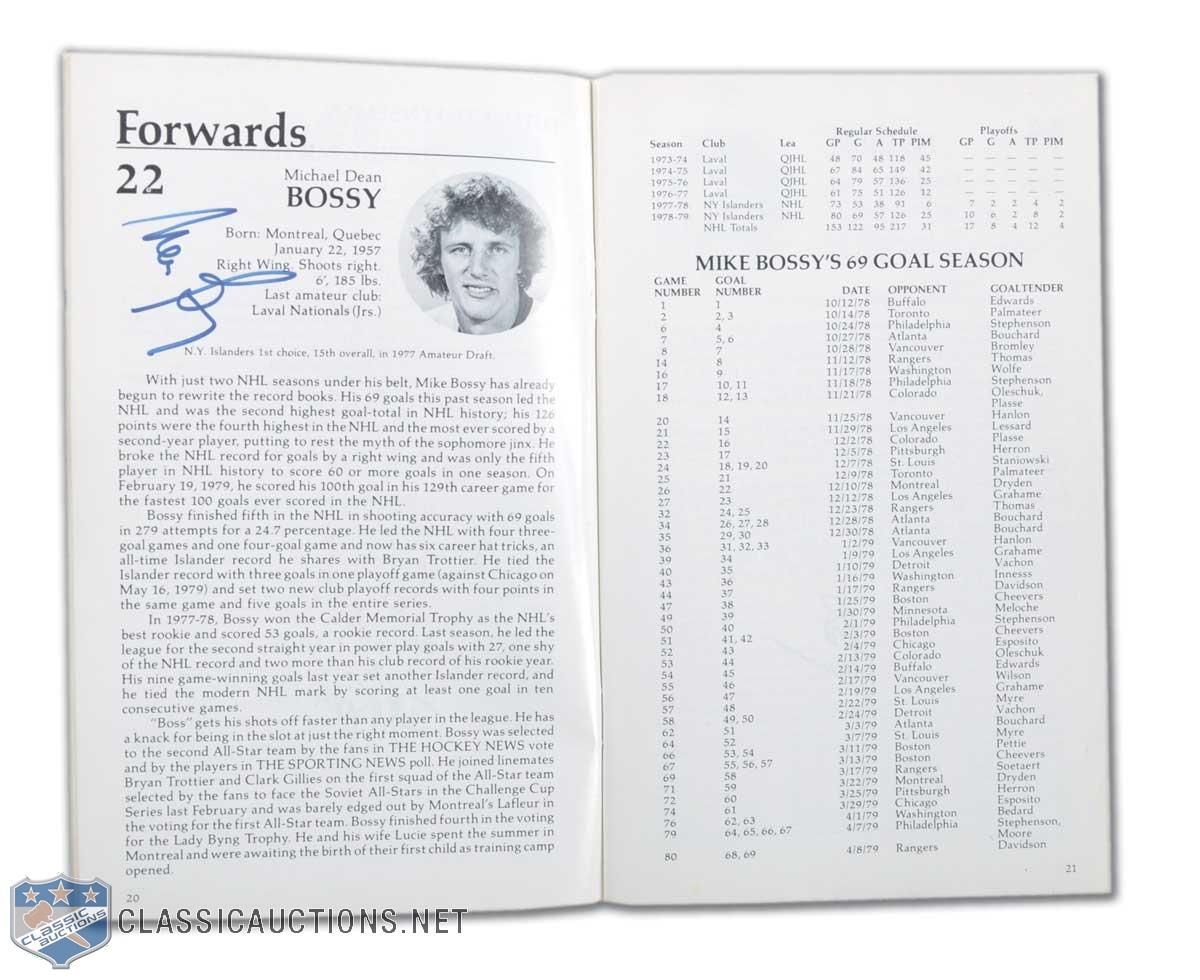 Forwards
22
Michael Dean
BOSSY
Born: Montreal, Quebec
January 22, 1957
Right Wing. Shoots right.
6', 185 lbs.
Last amateur club:
Laval Nationals (Jrs.)
N.Y. Islanders 1st choice, 15th overall, in 1977 Amateur Draft.
With just two NHL seasons under his belt, Mike Bossy has already
begun to rewrite the record books. His 69 goals this past season led the
NHL and was the second highest goal-total in NHL history; his 126
points were the fourth highest in the NHL and the most ever scored by a
second-year player, putting to rest the myth of the sophomore jinx. He
broke the NHL record for goals by a right wing and was only the fifth
player in NHL history to score 60 or more goals in one season. On
February 19, 1979, he scored his 100th goal in his 129th career game for
the fastest 100 goals ever scored in the NHL.
Bossy finished fifth in the NHL in shooting accuracy with 69 goals
in 279 attempts for a 24.7 percentage. He led the NHL with four three-
goal games and one four-goal game and now has six career hat tricks, an
all-time Islander record he shares with Bryan Trottier. He tied the
Islander record with three goals in one playoff game (against Chicago on
May 16, 1979) and set two new club playoff records with four points in
the same game and five goals in the entire series.
In 1977-78, Bossy won the Calder Memorial Trophy as the NHL's
best rookie and scored 53 goals, a rookie record. Last season, he led the
league for the second straight year in power play goals with 27, one shy
of the NHL record and two more than his club record of his rookie year.
His nine game-winning goals last year set another Islander record, and
he tied the modern NHL mark by scoring at least one goal in ten
consecutive games.
"Boss" gets his shots off faster than any player in the league. He has
a knack for being in the slot at just the right moment. Bossy was selected
to the second All-Star team by the fans in THE HOCKEY NEWS vote
and by the players in THE SPORTING NEWS poll. He joined linemates
Bryan Trottier and Clark Gillies on the first squad of the All-Star team
selected by the fans to face the Soviet All-Stars in the Challenge Cup
Series last February and was barely edged out by Montreal's Lafleur in
the voting for the first All-Star team. Bossy finished fourth in the voting
for the Lady Byng Trophy. He and his wife Lucie spent the summer in
Montreal and were awaiting the birth of their first child as training camp
opened.
20
Regular Schedule Playoffs
Season Club Lea GP G A TP PIM GP G A TP PIM
1973-74 Laval QJHL 48 70 48 118 45 — — — — —
1974-75 Laval QJHL 67 84 65 149 42 — — — — —
1975-76 Laval QJHL 64 79 57 136 25 — — — — —
1976-77 Laval QJHL 61 75 51 126 12 — — — — —
1977-78 NY Islanders NHL 73 53 38 91 6 7 2 2 4 2
1978-79 NY Islanders NHL 80 69 57 126 25 10 6 2 8 2
NHL Totals 153 122 95 217 31 17 8 4 12 4
MIKE BOSSY'S 69 GOAL SEASON
GAME GOAL
NUMBER NUMBER DATE OPPONENT GOALTENDER
1 1 10/12/78 Buffalo Edwards
2 2, 3 10/14/78 Toronto Palmateer
6 4 10/24/78 Philadelphia Stephenson
7 5, 6 10/27/78 Atlanta Bouchard
8 7 10/28/78 Vancouver Bromley
14 8 11/12/78 Rangers Thomas
16 9 11/17/78 Washington Wolfe
17 10, 11 11/18/78 Philadelphia Stephenson
18 12, 13 11/21/78 Colorado Oleschuk,
Plasse
20 14 11/25/78 Vancouver Hanlon
21 15 11/29/78 Los Angeles Lessard
22 16 12/2/78 Colorado Plasse
23 17 12/5/78 Pittsburgh Herron
24 18, 19, 20 12/7/78 St. Louis Staniowski
25 21 12/9/78 Toronto Palmateer
26 22 12/10/78 Montreal Dryden
27 23 12/12/78 Los Angeles Grahame
32 24, 25 12/23/78 Rangers Thomas
34 26, 27, 28 12/28/78 Atlanta Bouchard
35 29, 30 12/30/78 Atlanta Bouchard
36 31, 32, 33 1/2/79 Vancouver Hanlon
39 34 1/9/79 Los Angeles Grahame
40 35 1/10/79 Detroit Vachon
43 36 1/16/79 Washington Innesss
44 37 1/17/79 Rangers Davidson
47 38 1/25/79 Boston Cheevers
49 39 1/30/79 Minnesota Meloche
50 40 2/1/79 Philadelphia Stephenson
51 41, 42 2/3/79 Boston Cheevers
52 43 2/4/79 Chicago Esposito
53 44 2/13/79 Colorado Oleschuk
54 45 2/14/79 Buffalo Edwards
55 46 2/17/79 Vancouver Wilson
56 47 2/19/79 Los Angeles Grahame
57 48 2/22/79 St. Louis Myre
58 49, 50 2/24/79 Detroit Vachon
62 51 3/3/79 Atlanta Bouchard
64 52 3/7/79 St. Louis Myre
66 53, 54 3/11/79 Boston Pettie
67 55, 56, 57 3/13/79 Boston Cheevers
69 58 3/17/79 Rangers Soetaert
71 59 3/22/79 Montreal Dryden
72 60 3/25/79 Pittsburgh Herron
74 61 3/29/79 Chicago Esposito
76 62, 63 4/1/79 Washington Bedard
79 64, 65, 66, 67 4/7/79 Philadelphia Stephenson,
Moore
80 68, 69 4/8/79 Rangers Davidson
21
CLASSIC
AUCTIONS
CLASSICAUCTIONS.NET